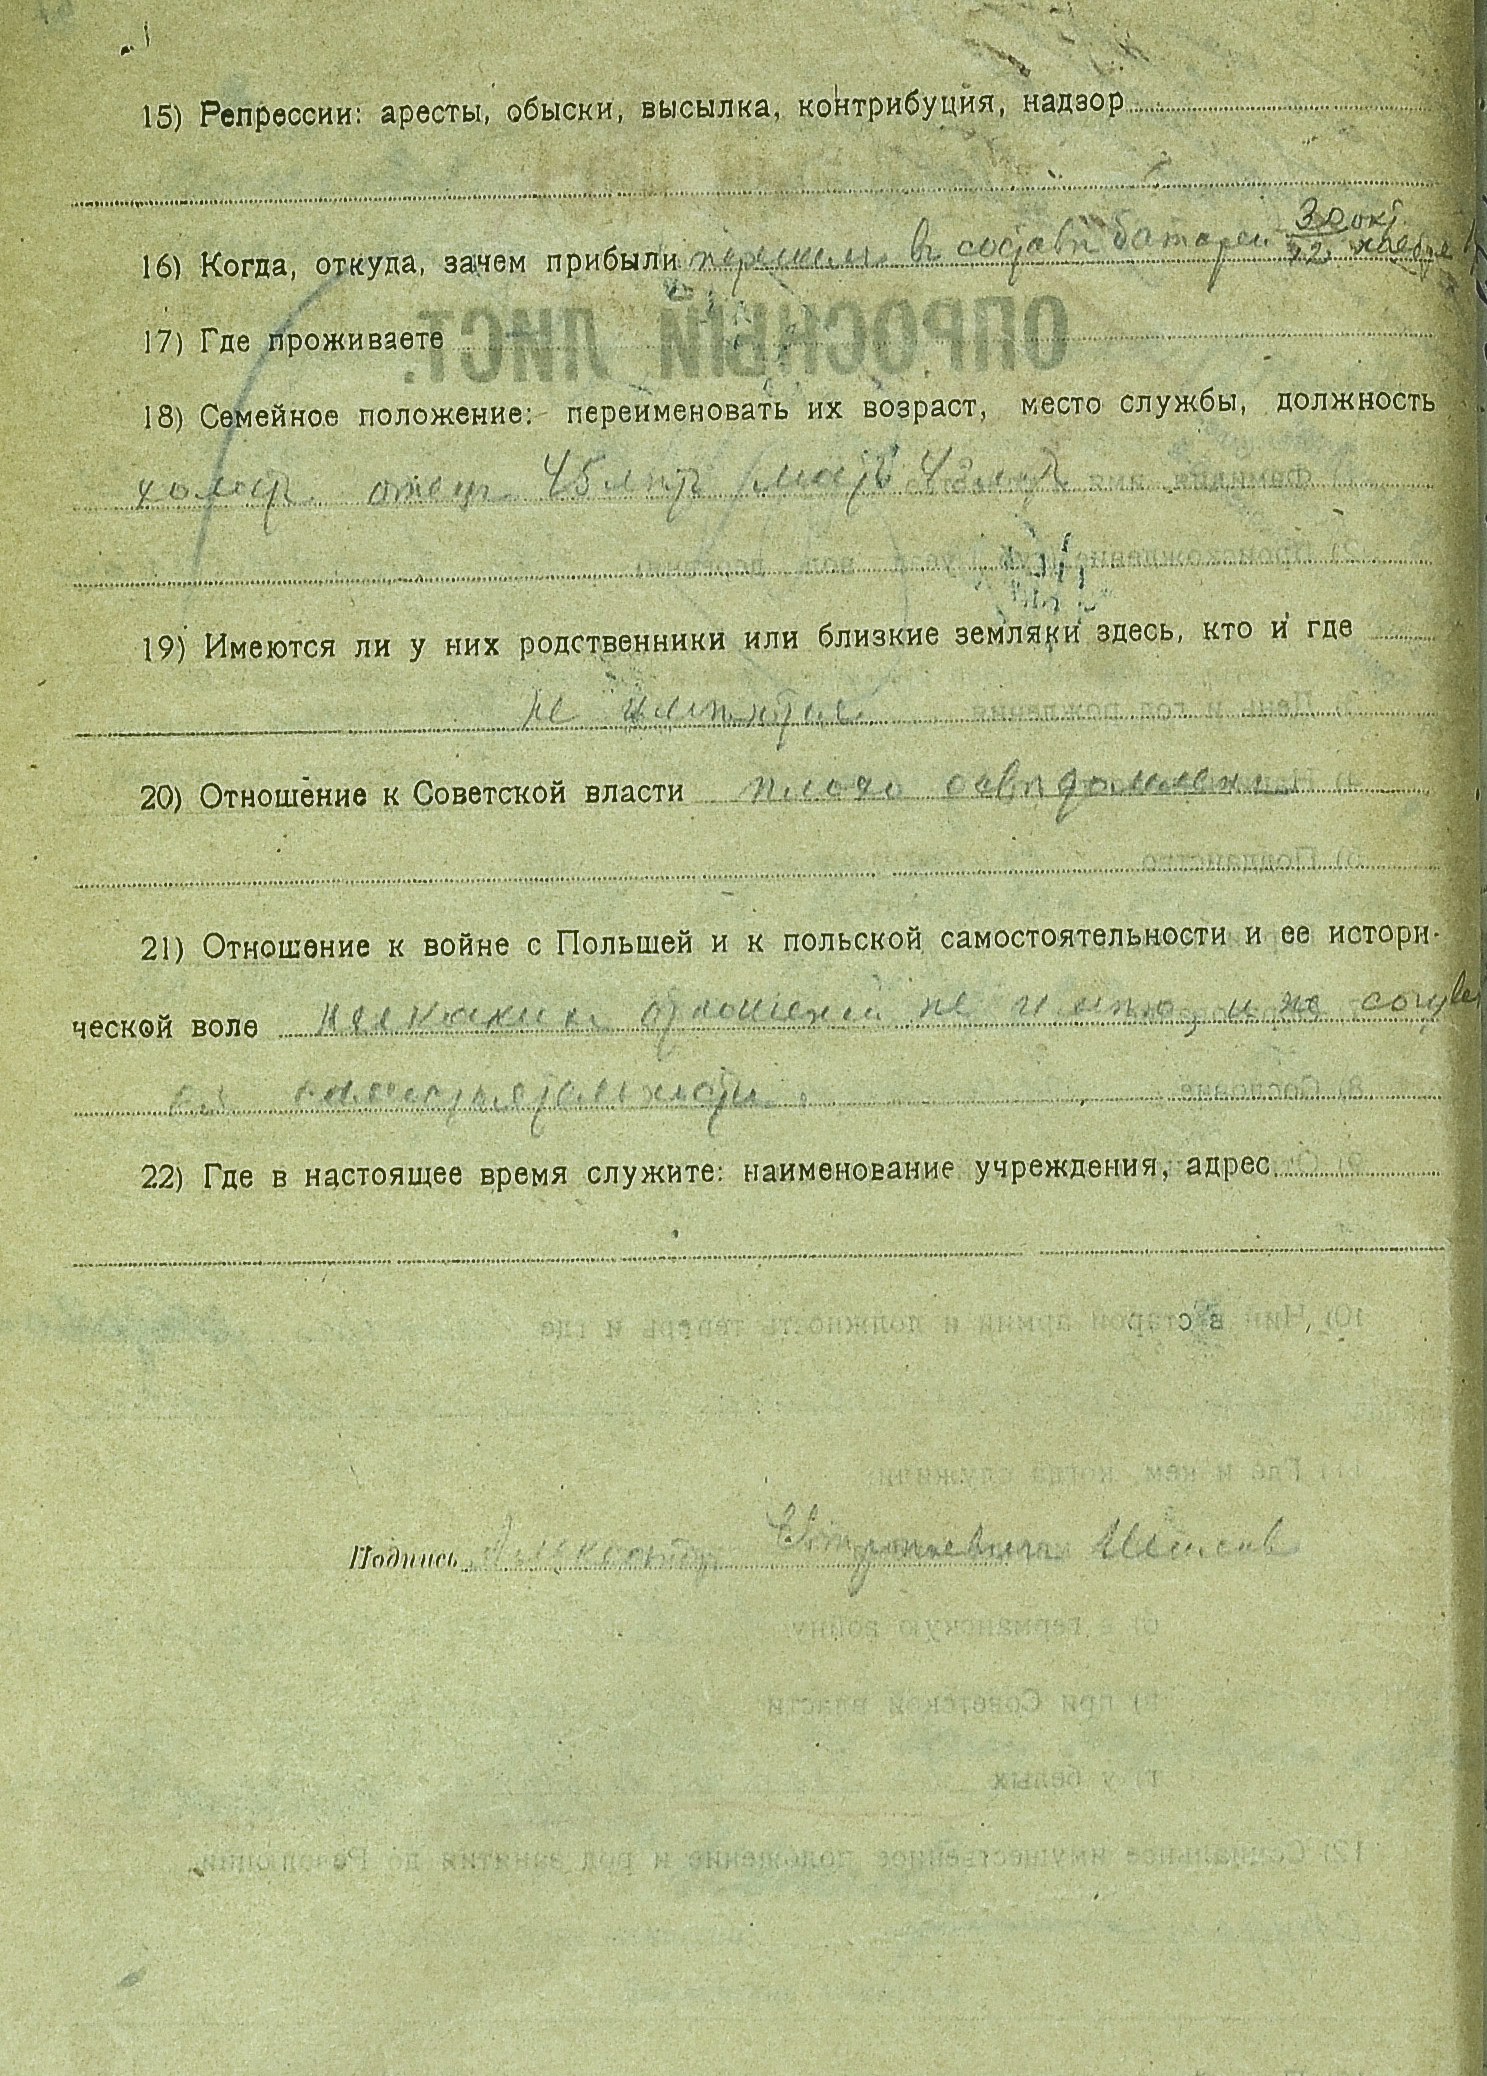 15) Репрессии: аресты, обыски, высылка, контрибуция, надзор
16) Когда, откуда, зачем прибыли перешли в составѣ батареи 30 окт.
17) Где проживаете
18) Семейное положение: переименовать их возраст, место службы, должность
холост отец 45 лѣтъ мать 43 лѣтъ
19) Имеются ли у них родственники или близкие земляки здесь, кто и где
не имѣются
20) Отношение к Советской власти плохо освѣдомлен
21) Отношение к войне с Польшей и к польской самостоятельности и ее истори-
ческой воле отношений не имѣю, и не
самостоятельности.
22) Где в настоящее время служите: наименование учреждения, адрес
Подпись Александр